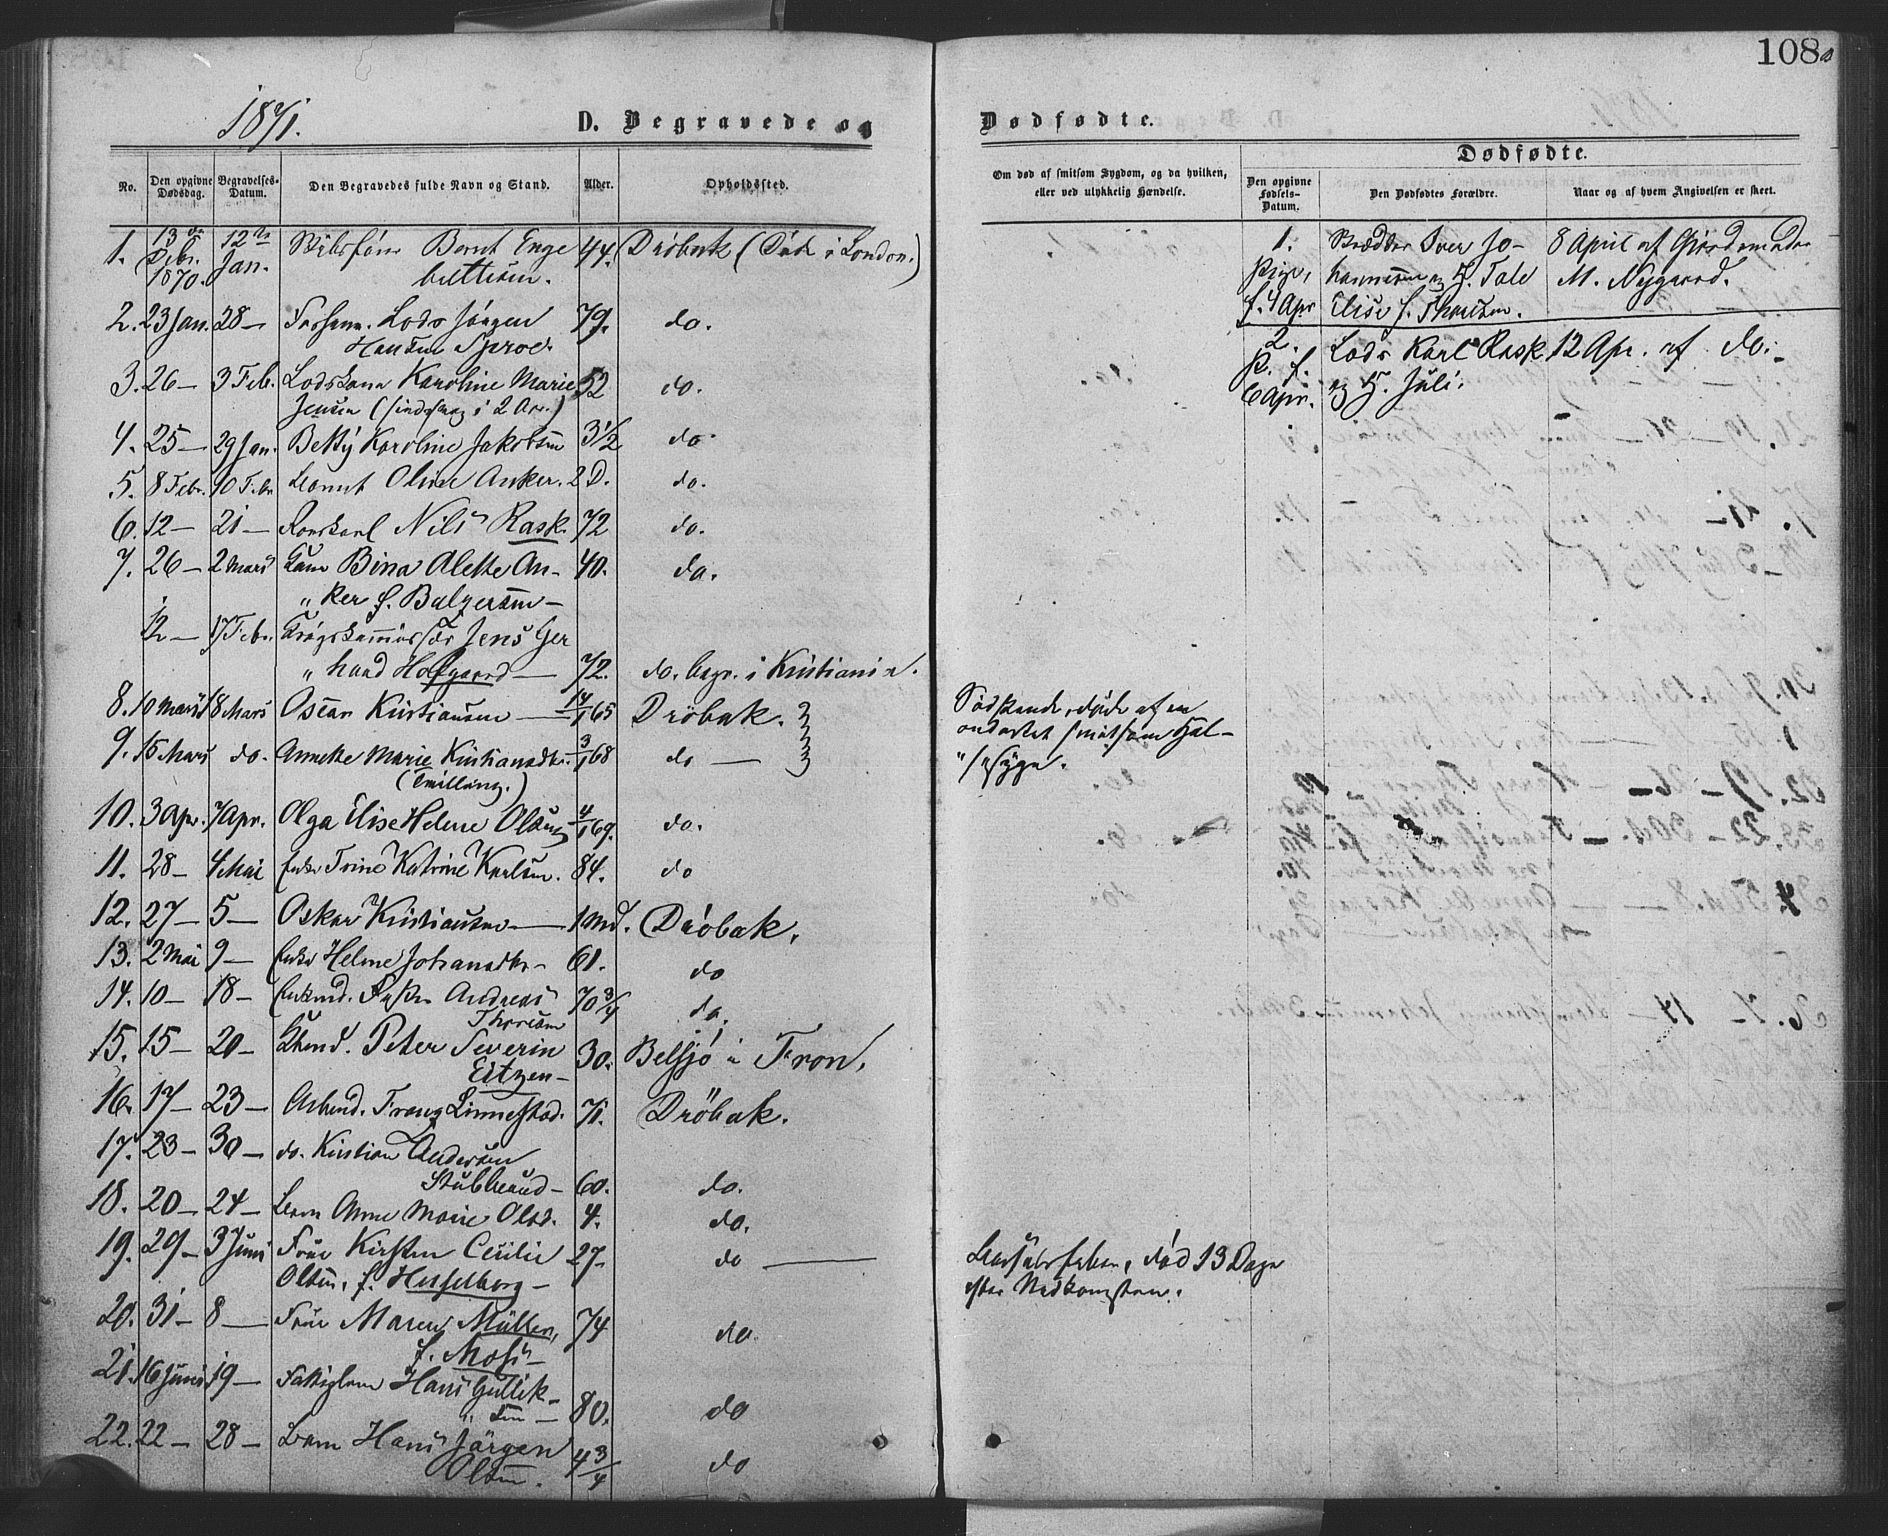 108
1871.
D. Begravede og
Dødfødte.
No.
Den opgivne Dødsdag.
Begravelses-Datum.
Den Begravedes fulde Navn og Stand.
Alder.
Opholdssted.
Om død af smitsom Sygdom, og da hvilken,
eller ved ulykkelig Hændelse.
Dødfødte.
Den opgivne Fødsels-Datum.
Den Dødfødtes Forældre.
Naar og af hvem Angivelsen er skeet.
1. 13 Debr. 1870. 12 Jan. Bernt Enge 44. Drøbak (Død i London.)
beltsen.
2. 23 Jan. 28 — Lods Jörgen 79. do.
Hansen Sproe.
3. 26 — 3 Feb. Lodskone Karoline Marie 52 do.
Jensen (sindssvag i 2 Aar.)
4. 25 — 29 Jan. Betty Karoline Jakobsen 3½ do.
5. 8 Febr. 10 Febr. Oline Anker. 2 D. do.
6. 12 — 21 — Nils Rask. 72 do.
7. 26 — 2 Mars Bina Alette An- 40. do.
ker f. Balzersen —
12 — 17 Febr. Krigskommissær Jens Ger
" hard Hofgaard — 72. do. begr. i Kristiania.
8. 10 Mars 18 Mars Oscar Kristiansen — 14/1 65 Drøbak.
9. 15 Mars do. Annette Marie Kristiansdtr. 3/1 68 do —
(Tvilling.)
10. 3 Apr. 7 Apr. Olga Elise Helene Olsen 4/1 69. do.
11. 28 — 4 Mai Enke Trine Katrine Karlsen. 84. do
12. 27 — 5 — Oskar Kristiansen — 1 Md. Drøbak.
13. 2 Mai 9 — Enke Helene Johansdtr — 61. do
14. 10 — 18 — Andreas 70¾ do.
Thoresen
15. 15 — 20 — Peter Severin 30. Belsjö i Fron.
Eitzen —
16. 17 — 23 — Arbmd. Franz Linnestad. 71. Drøbak.
17. 23 — 30 — do. Kristian Andersen
Stubberud — 60. do.
18. 20 — 24 — Barn Anne Marie Olsd. 4. do.
19. 29 — 3 Juni Frue Kirsten Cecilie 27 — do —
Olsen, f. Hesselberg —
20. 31 — 8 — Frue Maren Müller, 74 do
f. Moss —
21. 16 Juni 19 — Fattiglem Hans Gullik-
" sen — 80. do
22. 22 — 28 — Barn Hans Jörgen
Olsen. 4¾ do
Södskende, døde af en
ondartet smitsom Hal-
" sesyge.
Barselsfeber, død 13 Dage
efter Nedkomsten.
1. Pige, f. 4 Apr
Snedker Iver Jo-
hannesen og H. Tale
Elise f. Thoresen.
8 April af Gjordemoder
M. Nygaard.
2. P. f. 6 Apr.
Lods Karl Rask
og H. Juli.
12 Apr. af do.